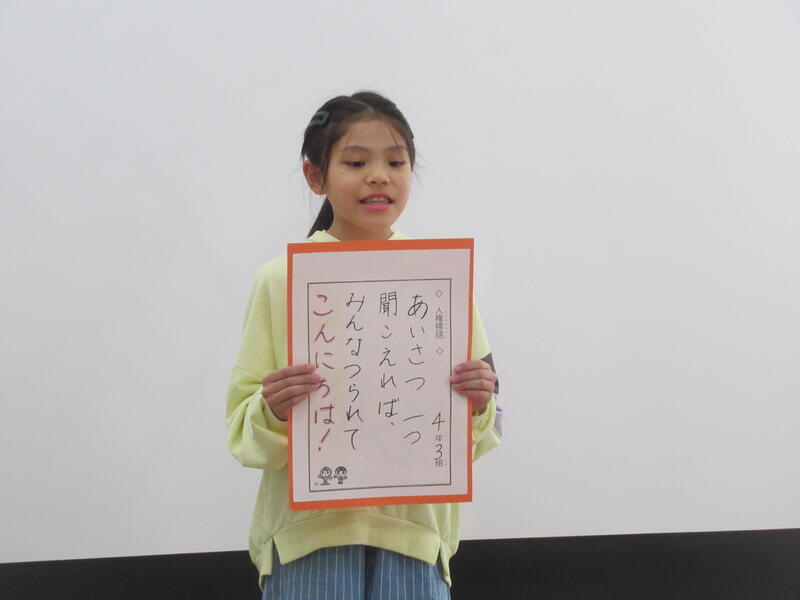 ◇ 人権標語 ◇
4年3組
あいさつ 一つ
聞こえれば、
みんなつられて
こんにちは!